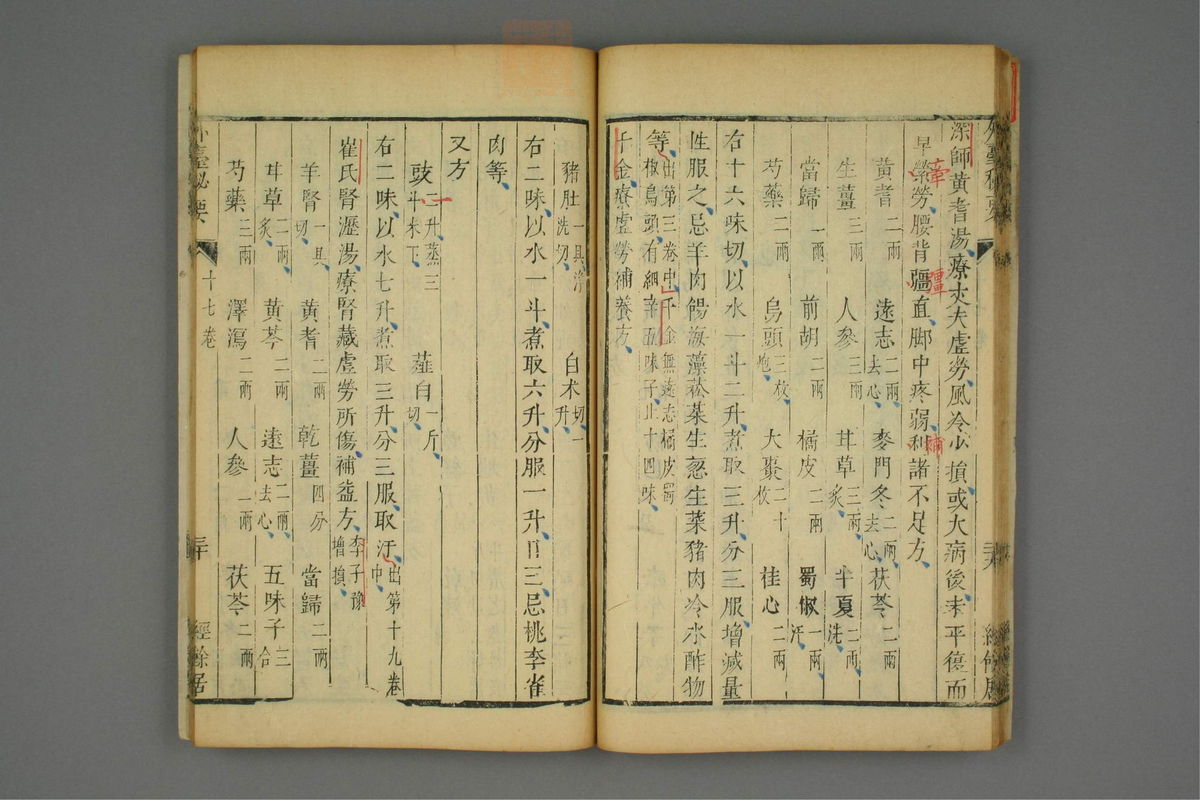 深師黃耆湯療丈夫虛勞風冷少損或大病後未平復而
早縈勞腰背彊直脚中疼弱利諸不足方
牽
畺
補
黃耆二兩 遠志二兩去心 麥門冬二兩去心 茯苓二兩
生薑三兩 人參三兩 甘草三兩炙 半夏二兩洗
當歸一兩 前胡二兩 橘皮二兩 蜀椒一兩汗
芍藥二兩 烏頭三枚炮 大棗二十枚 桂心二兩
右十六味切以水一斗二升煮取三升分三服增減量
性服之忌羊肉餳海藻菘菜生葱生菜豬肉冷水酢物
等出第三卷中千金無遠志橘皮蜀椒烏頭有細辛五味子止十四味
千金療虛勞補養方
豬肚一具淨洗切 白朮切一升
右二味以水一斗煮取六升分服一升日三忌桃李雀
肉等
又方
豉二升蒸三斗米下 薤白一斤切
右二味以水七升煮取三升分三服取汗出第十九卷中
崔氏腎瀝湯療腎藏虛勞所傷補益方李子豫增損
羊腎一具切 黃耆二兩 乾薑四分 當歸二兩
甘草二兩炙 黃芩二兩 遠志二兩去心 五味子三合
芍藥三兩 澤瀉二兩 人參一兩 茯苓二兩
外臺祕要 十七卷 三十 經餘居